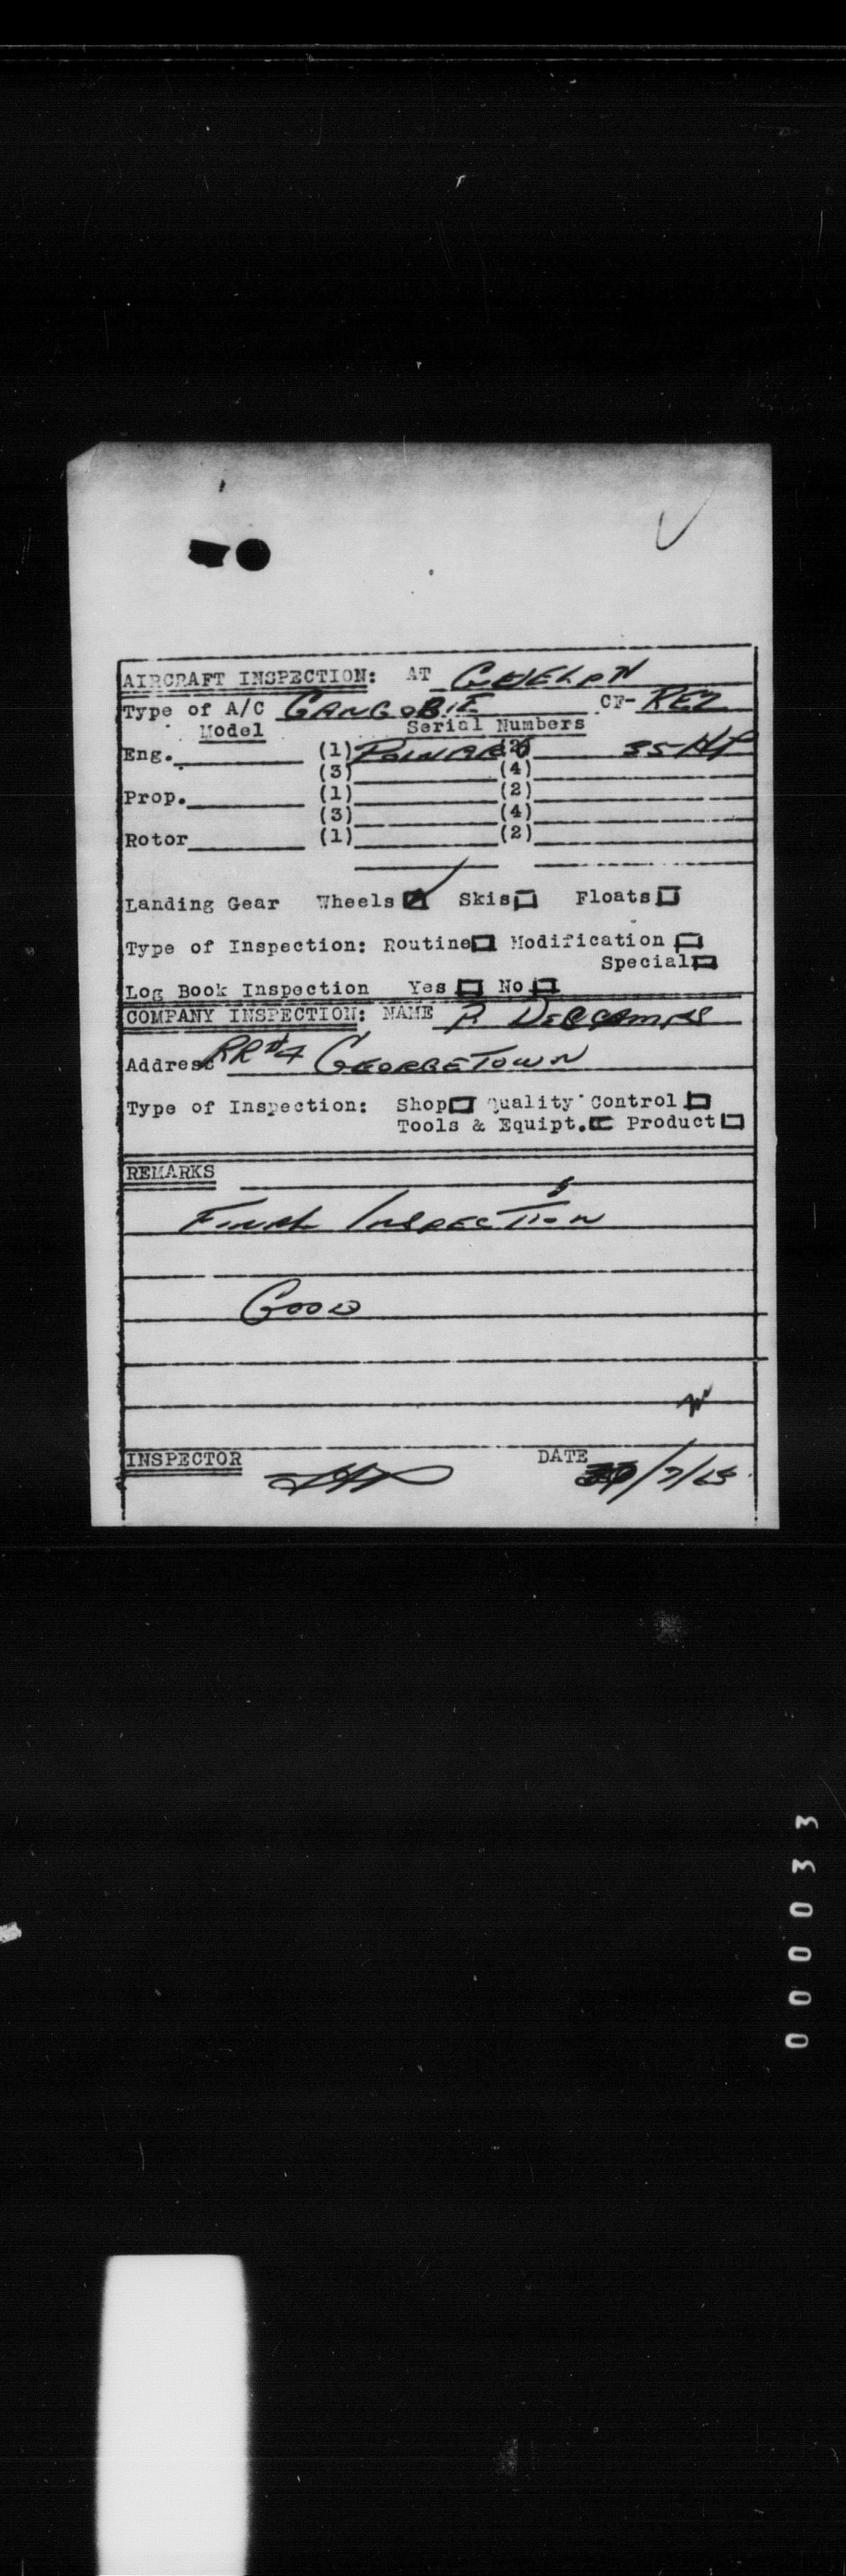 AIRCRAFT INSPECTION: AT GUELPH
Type of A/C GANGOBIE CF- REZ
Model Serial Numbers
Eng. (1) POINARD (2) 35 HP
(3) (4)
Prop. (1) (2)
(3) (4)
Rotor (1) (2)
Landing Gear Wheels Skis Floats
Type of Inspection: Routine Modification
Special
Log Book Inspection Yes No
COMPANY INSPECTION: NAME P.
Address RR#4 GEORGETOWN
Type of Inspection: Shop Quality Control
Tools & Equipt. Product
REMARKS
FINAL INSPECTION
GOOD
INSPECTOR DATE /7/65
000033